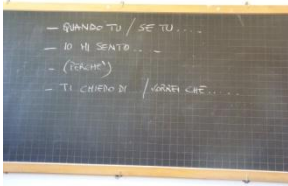 - QUANDO TU / SE TU ....
- IO MI SENTO ...
- (PERCHÉ)
- TI CHIEDO DI / VORREI CHE .....